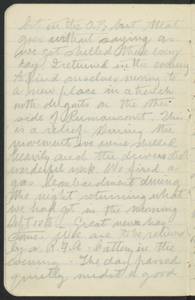 but in the O.P. but. Meal
goes without saying as
we get shelled there every
day. I returned in the evening
to find ourselves moving to
a new place in a
on the other
side of This
is a relief. During the
movement we were shelled
heavily and the drivers did
wonderful work. We fired a
gas bombardment during
the night returning what
we had got in the morning
Oct 10th. Great news has
come. We are to be relieved
by a R.F.A. Battery in the
evening. The day passed
quietly midst a good